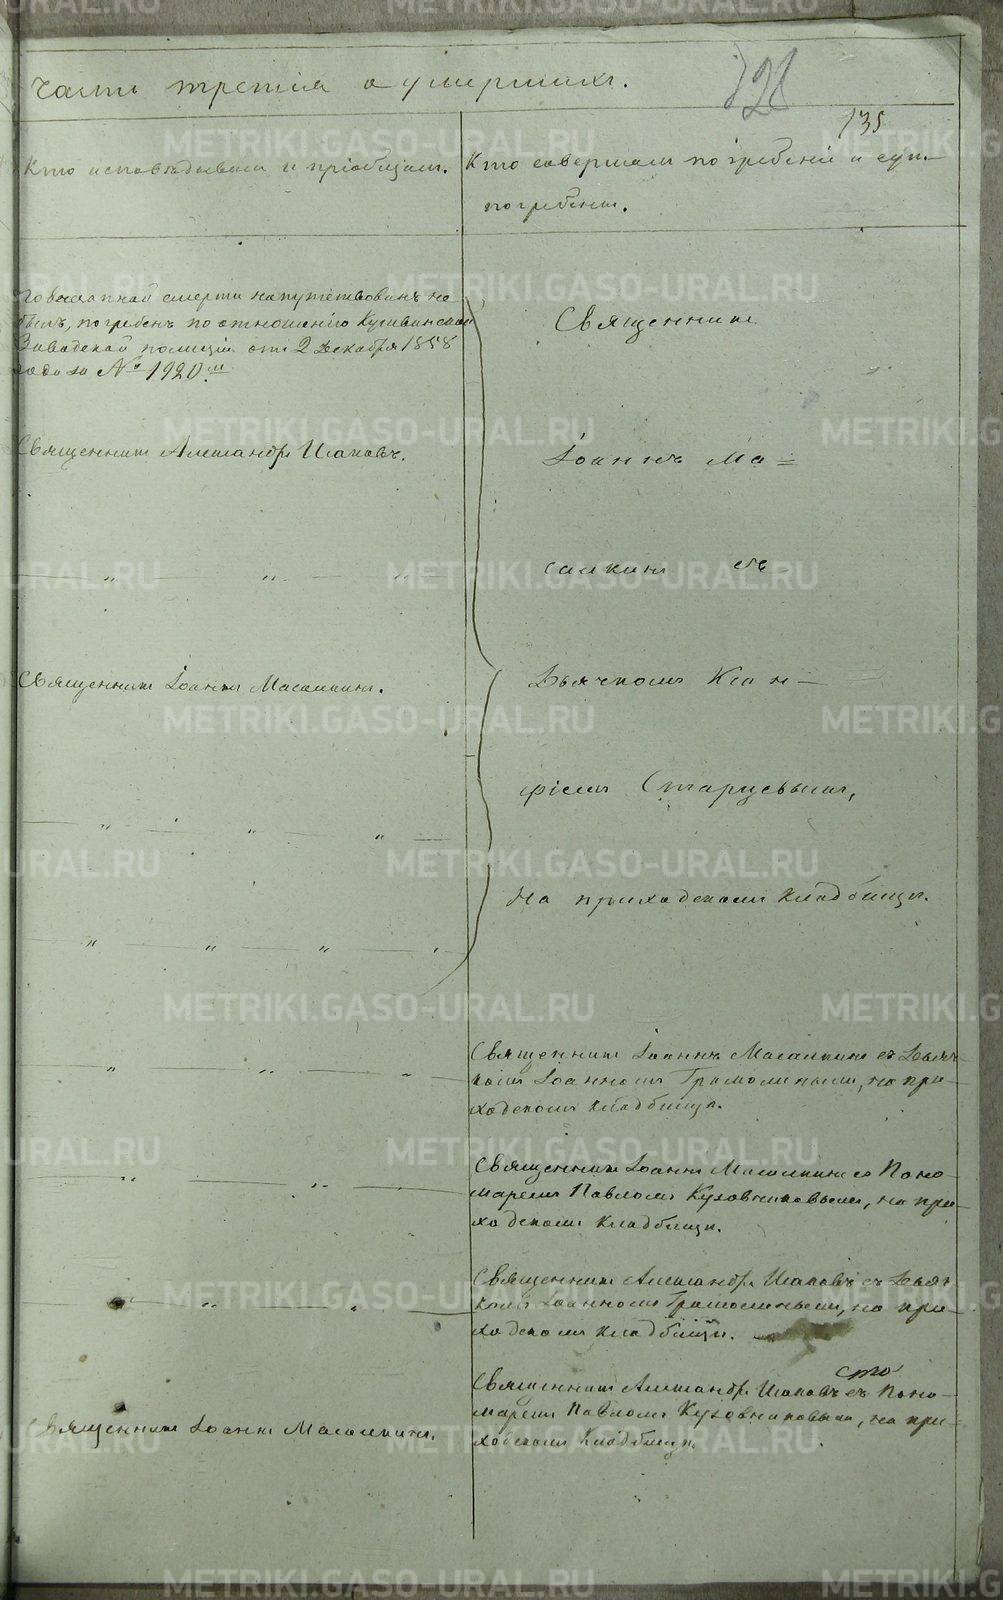 Часть третія о умершихъ.
128
135
Кто исповѣдывалъ и пріобщалъ.
Кто совершалъ погребеніе и
погребены.
По внезапной смерти напутствованъ не
былъ, погребенъ по отношенію Кушвинской
Заводской полиціи отъ 2 Декабря 1858
года за № 1920.м
Священникъ Александръ Иаковъ.
Священникъ Іоаннъ Масалкинъ.
Священникъ Іоаннъ Масалкинъ.
Священникъ
Іоаннъ Ма=
салкинъ съ
Дьячкомъ Клав-
діемъ Старцевымъ,
на приходскомъ кладбищѣ.
Священникъ Іоаннъ Масалкинъ съ Дьяч-
комъ Іоанномъ Грамолинымъ, на при-
ходскомъ кладбищѣ.
Священникъ Іоаннъ Масалкинъ съ Поно-
маремъ Павломъ Кузовниковымъ, на при-
ходскомъ кладбищѣ.
Священникъ Александръ Иаковъ съ Дьяч-
комъ Іоанномъ Грамолинымъ, на при-
ходскомъ кладбищѣ.
Священникъ Александръ Иаковъ съ Поно-
маремъ Павломъ Кузовниковымъ, на при-
ходскомъ кладбищѣ.
METRIKI.GASO-URAL.RU